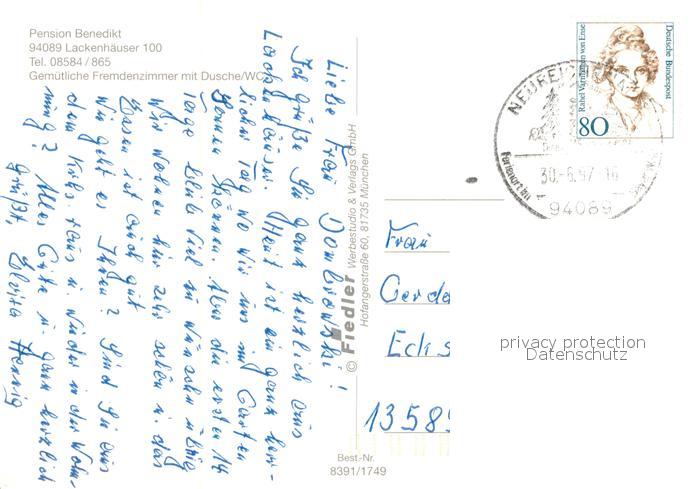 Pension Benedikt
94089 Lackenhäuser 100
Tel. 08584 / 865
Gemütliche Fremdenzimmer mit Dusche/WC
Liebe Frau Dombrowski!
Ich grüße Sie ganz herzlich aus
Lackenhäuser. Heut ist ein ganz herr-
licher Tag wo wir uns im Garten
sonnen können. Aber die ersten 14
Tage blieb viel zu wünschen übrig
Wir wohnen hier sehr schön u. das
Essen ist auch gut.
Wie geht es Ihnen? Sind Sie aus
dem Krhs. raus u. wieder in der Wohn-
ung? Alles Gute u. ganz herzlich
grüßt, Hennig
© Fiedler Werbestudio & Verlags GmbH
Hofangerstraße 60, 81735 München
Best.-Nr.
8391/1749
Deutsche Bundespost
Rahel Varnhagen von Ense
80
NEUREI
30.-6.97-16
Ferienort im
94089
Frau
Gerda
Ecks
13589
privacy protection
Datenschutz